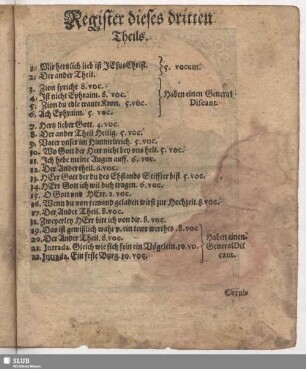 Register dieses dritten
Theils.
1. Wie herzlich lieb ist JEsus Christ. } 5. vocum.
2. Der ander Theil.
3. Zion spricht 8. voc.
4. Ist nicht Ephraim. 8. voc.
5. Zion du edle traute Kron. 5. voc.
6. Ach Ephraim. 5. voc.
Haben einen General
Discant.
7. Herz lieber Gott. 4. voc.
8. Der ander Theil Heilig. 5. voc.
9. Vater unser im Himmelreich. 5. voc.
10. Wo Gott der Herr nicht bey uns helt. 5. voc.
11. Ich hebe meine Augen auff. 6. voc.
12. Der Ander theil. 6. voc.
13. HErr Gott der du des Ehstands Stiffter bist. 5. voc.
14. HErr Gott ich wil dich tragen. 6. voc.
15. O Gott und HErr. 2. voc.
16. Wenn du von jemand geladen wirst zur Hochzeit 8. voc.
17. Der Ander Theil. 8. voc.
18. Zweyerley HErr bitt ich von dir. 8. voc.
19. Das ist gewißlich wahr v. ein tewr werthes. 8. voc
20. Der Ander Theil. 8. voc.
21. Intrada. Gleich wie sich fein ein Vögelein. 10. vo.
22. Intrada. Ein feste Burg. 10. voc.
Haben einen
General Dis
cant.
SLUB